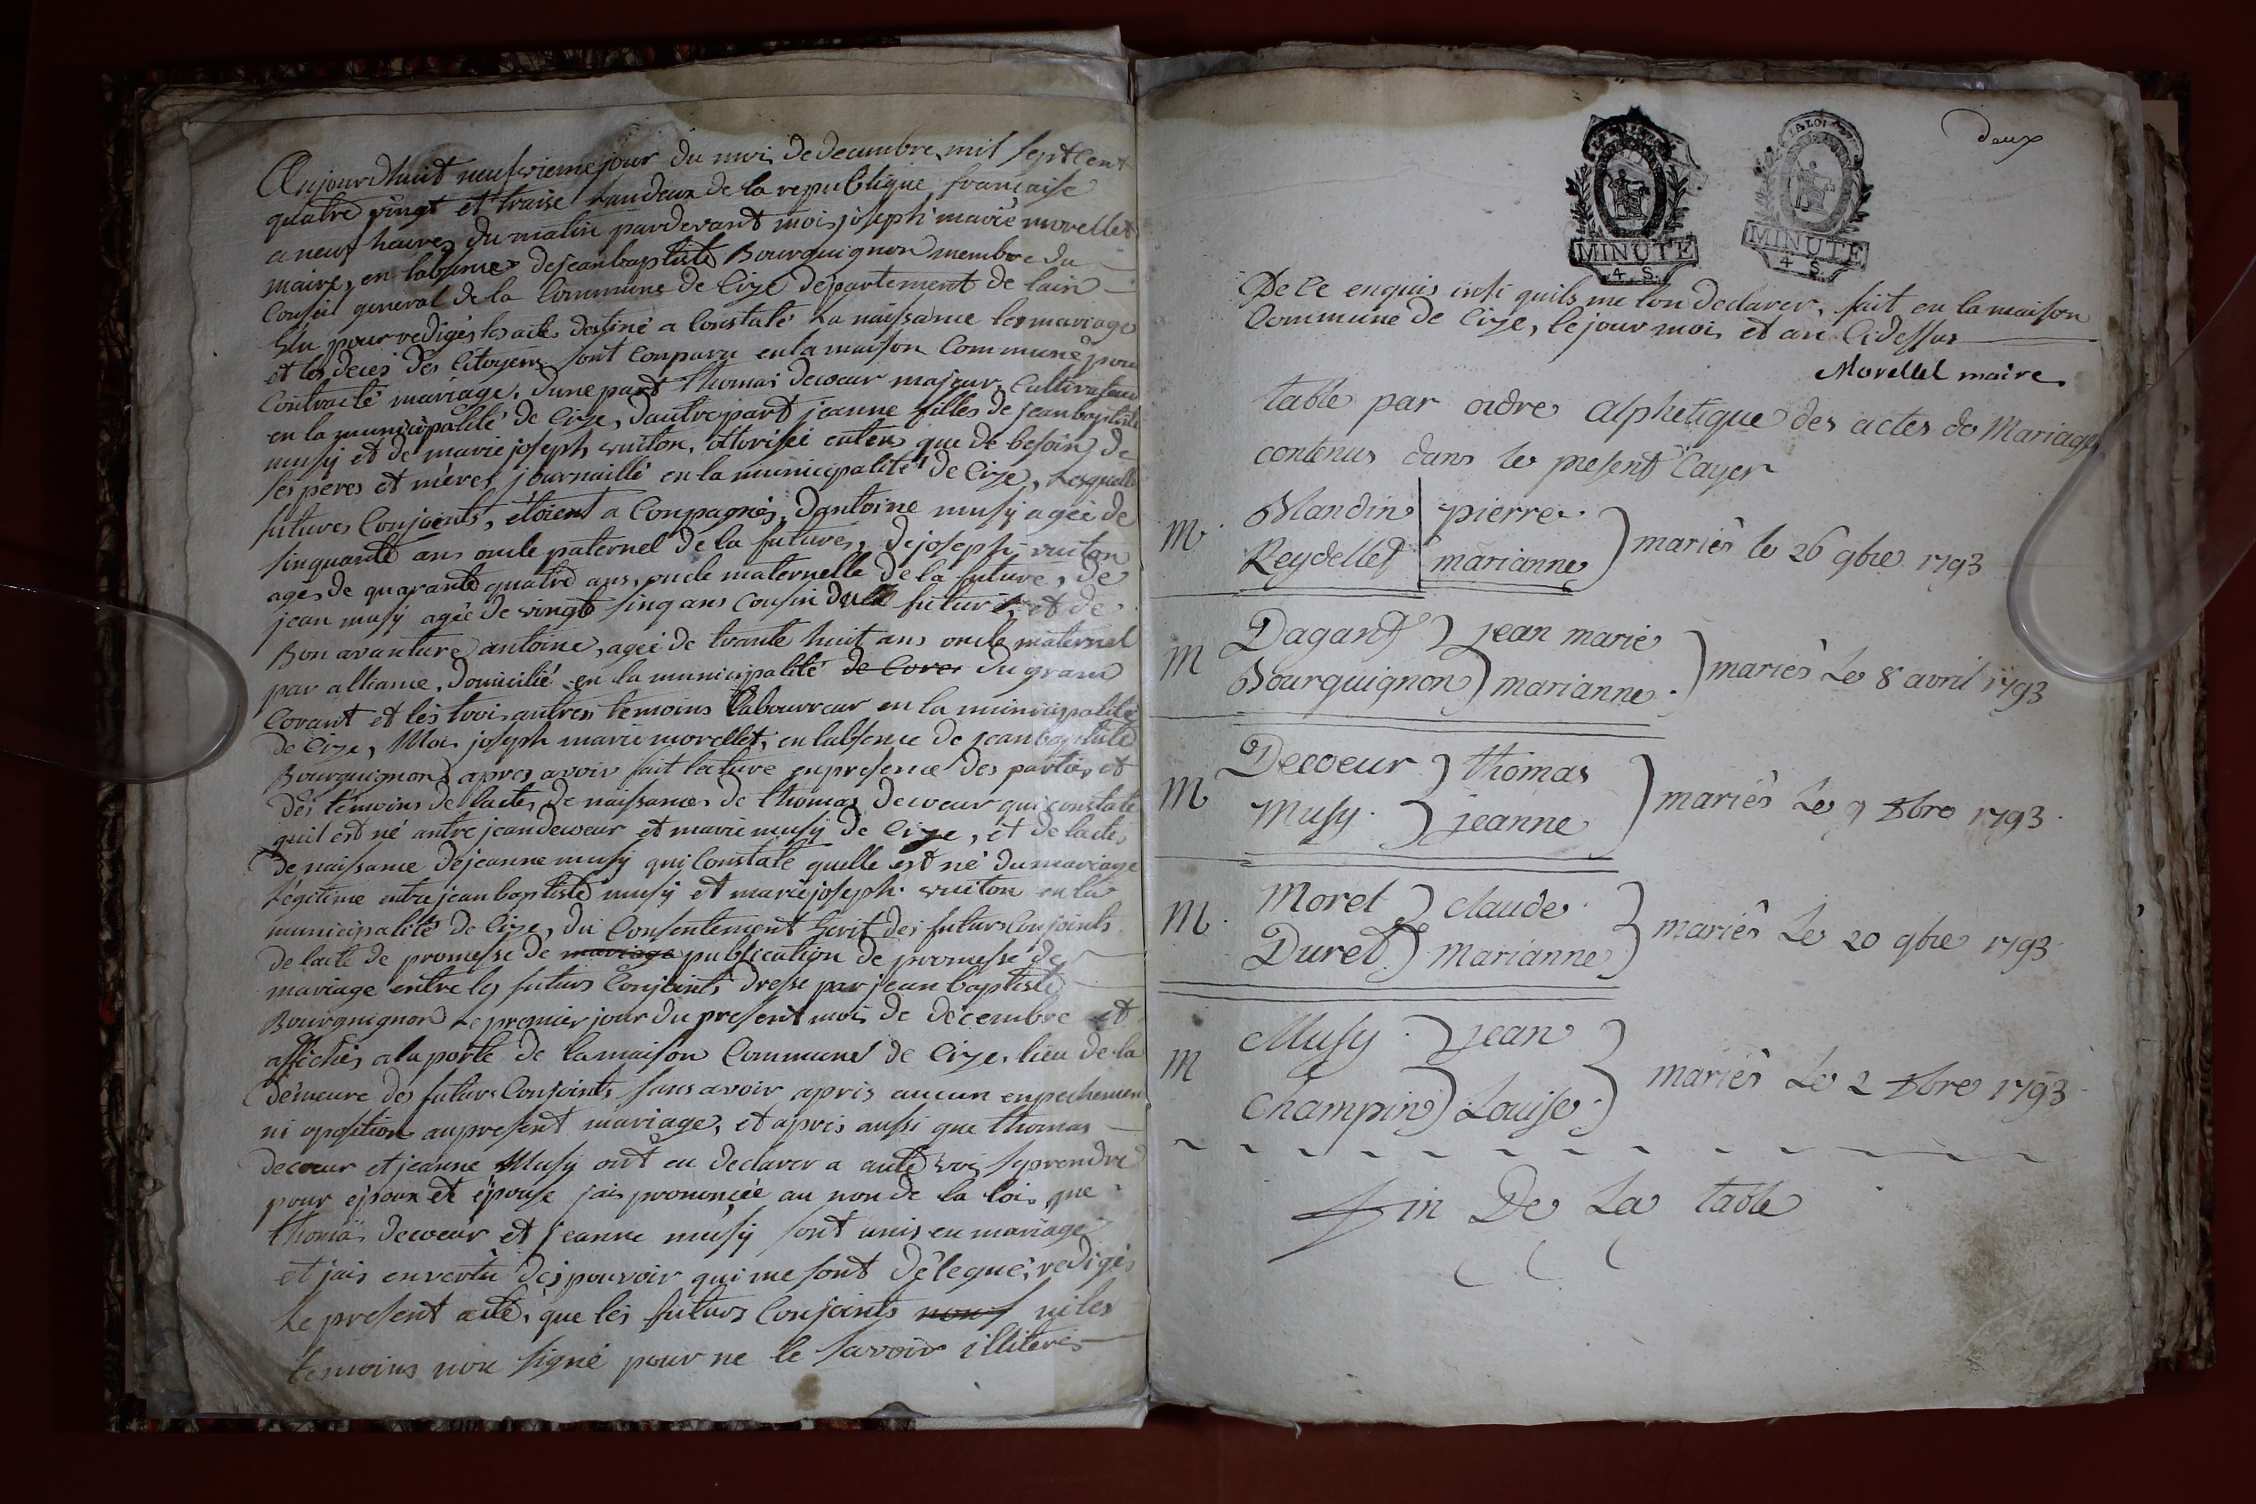 Aujourdhuit neufvieme jour du moi de decembre mil sept cent
quatre vingt et traise l'an deux de la republique francaise
a neuf heures du matin pardevant moi joseph marie morellet
maire, en labsence de jean baptiste Bourguignon membre du
Conseil general de la Commune de Cize departement de lain
Elu pour redigés les actes destiné a Constaté La naissance les mariage
et les decés des Citoyens sont Comparu en la maison Commune pour
Contracté mariage, dune part thomas decoeur majeur, Cultivateur
en la municipalité de Cize, dautre part jeanne filles de jean baptiste
musy et de marie joseph vuiton, ottorisée enten que de besoin de
ses peres et méres journaillé en la municipalité de Cize, Lesquelle
futures Conjoints, étoient a Compagniés, dantoine musy agée de
sinquante ans oncle paternel de la futures, de joseph vuiton
agés de quarante quatre ans, oncle maternelle de la future, de
jean musy agée de vingt sinq ans Cousin futur et de
Bon avanture antoine, ageé de trante huit ans oncle maternel
par alliance, domicilié en la municipalité de Corve du grand
Corant et les trois autres temoins labourreur en la municipalité
de Cize, Moi joseph marie morellet, en labsence de jean baptiste
Bourguignon apres avoir fait lecture en presence des parties et
des témoins de lactes de naissances de thomas decoeur qui constate
quil est né antre jean decoeur et marie musÿ de Cize, et de lactes
de naissance de jeanne musy qui Constate quelle est né du mariage
Légitime entre jean baptiste musy et marie joseph vuiton en la
municipalité de Cize, du Consentement Ecrit des futurs Conjoints
de lacte de promesse de mariage publication de promesse de
mariage entre les futurs Conjoints dressé par jean baptiste
Bourguignon Le premier jour du present mois de décembre et
affichés a la porte de la maison Commune de Cize, lieu de la
démeure des futurs Conjoints sans avoir apris aucun enpechement
ni oposition au present mariage, et apris aussi que thomas
decoeur et jeanne Musy ont eu declarer a aute voi se prendre
pour epoux et épouse jais prononcée au non de la loi que
thomas decoeur et jeanne musÿ sont unis en mariage
et jais en vertu des pouvoir qui me sont délegué, redigés
Le present acte, que les futurs Conjoints non ni les
temoins non signé pour ne le savoir illiteres
deux
LA LOI
MINUTE
4. S.
MINUTE
4 S.
De Ce enquis insi quils me lon declarer, fait en la maison
Commune de Cize, le jour mois et an Cidessus
Morellet maire
table par ordre alphetique des actes de Mariages
contenus dans le present Cayer
M. Blandin pierre
Reydellet marianne mariés le 26 9bre 1793
M Dagand jean marie
Bourguignon marianne mariés Le 8 avril 1793
M Decoeur thomas
Musy jeanne mariés Le 9 Xbre 1793
M. Morel claude
Duret Marianne mariés Le 20 9bre 1793
M Musy jean
Champin Louise mariés Le 2 Xbre 1793
fin De La table